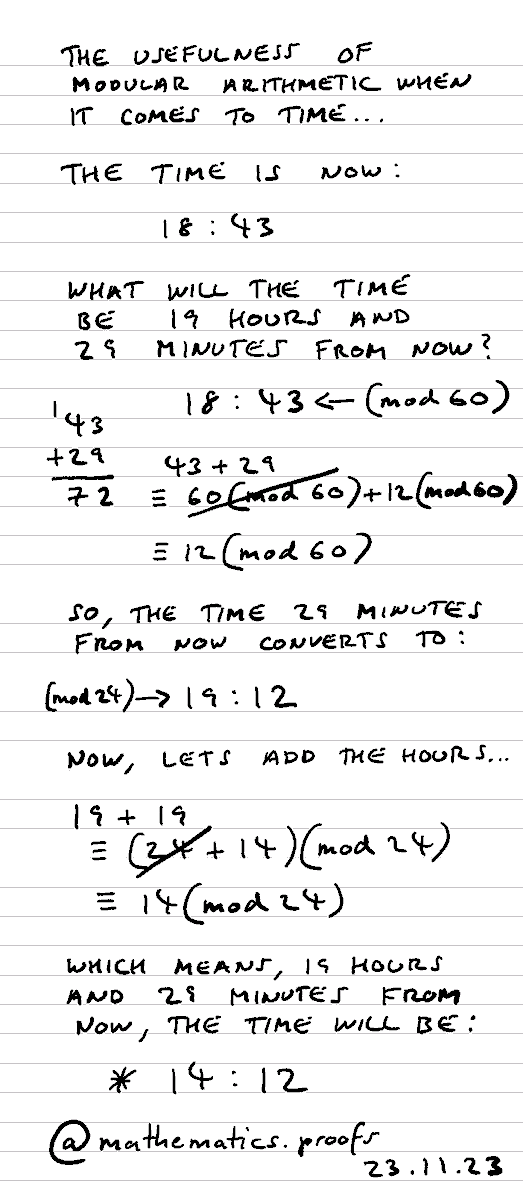 THE USEFULNESS OF
MODULAR ARITHMETIC WHEN
IT COMES TO TIME...
THE TIME IS NOW:
18:43
WHAT WILL THE TIME
BE 19 HOURS AND
29 MINUTES FROM NOW?
18:43 ← (mod 60)
1
43
+29
72
43 + 29
≡ 60(mod 60)+12(mod 60)
≡ 12(mod 60)
SO, THE TIME 29 MINUTES
FROM NOW CONVERTS TO:
(mod 24)→ 19:12
NOW, LETS ADD THE HOURS...
19 + 19
≡ (24 + 14)(mod 24)
≡ 14(mod 24)
WHICH MEANS, 19 HOURS
AND 29 MINUTES FROM
NOW, THE TIME WILL BE:
* 14:12
@mathematics.proofs
23.11.23